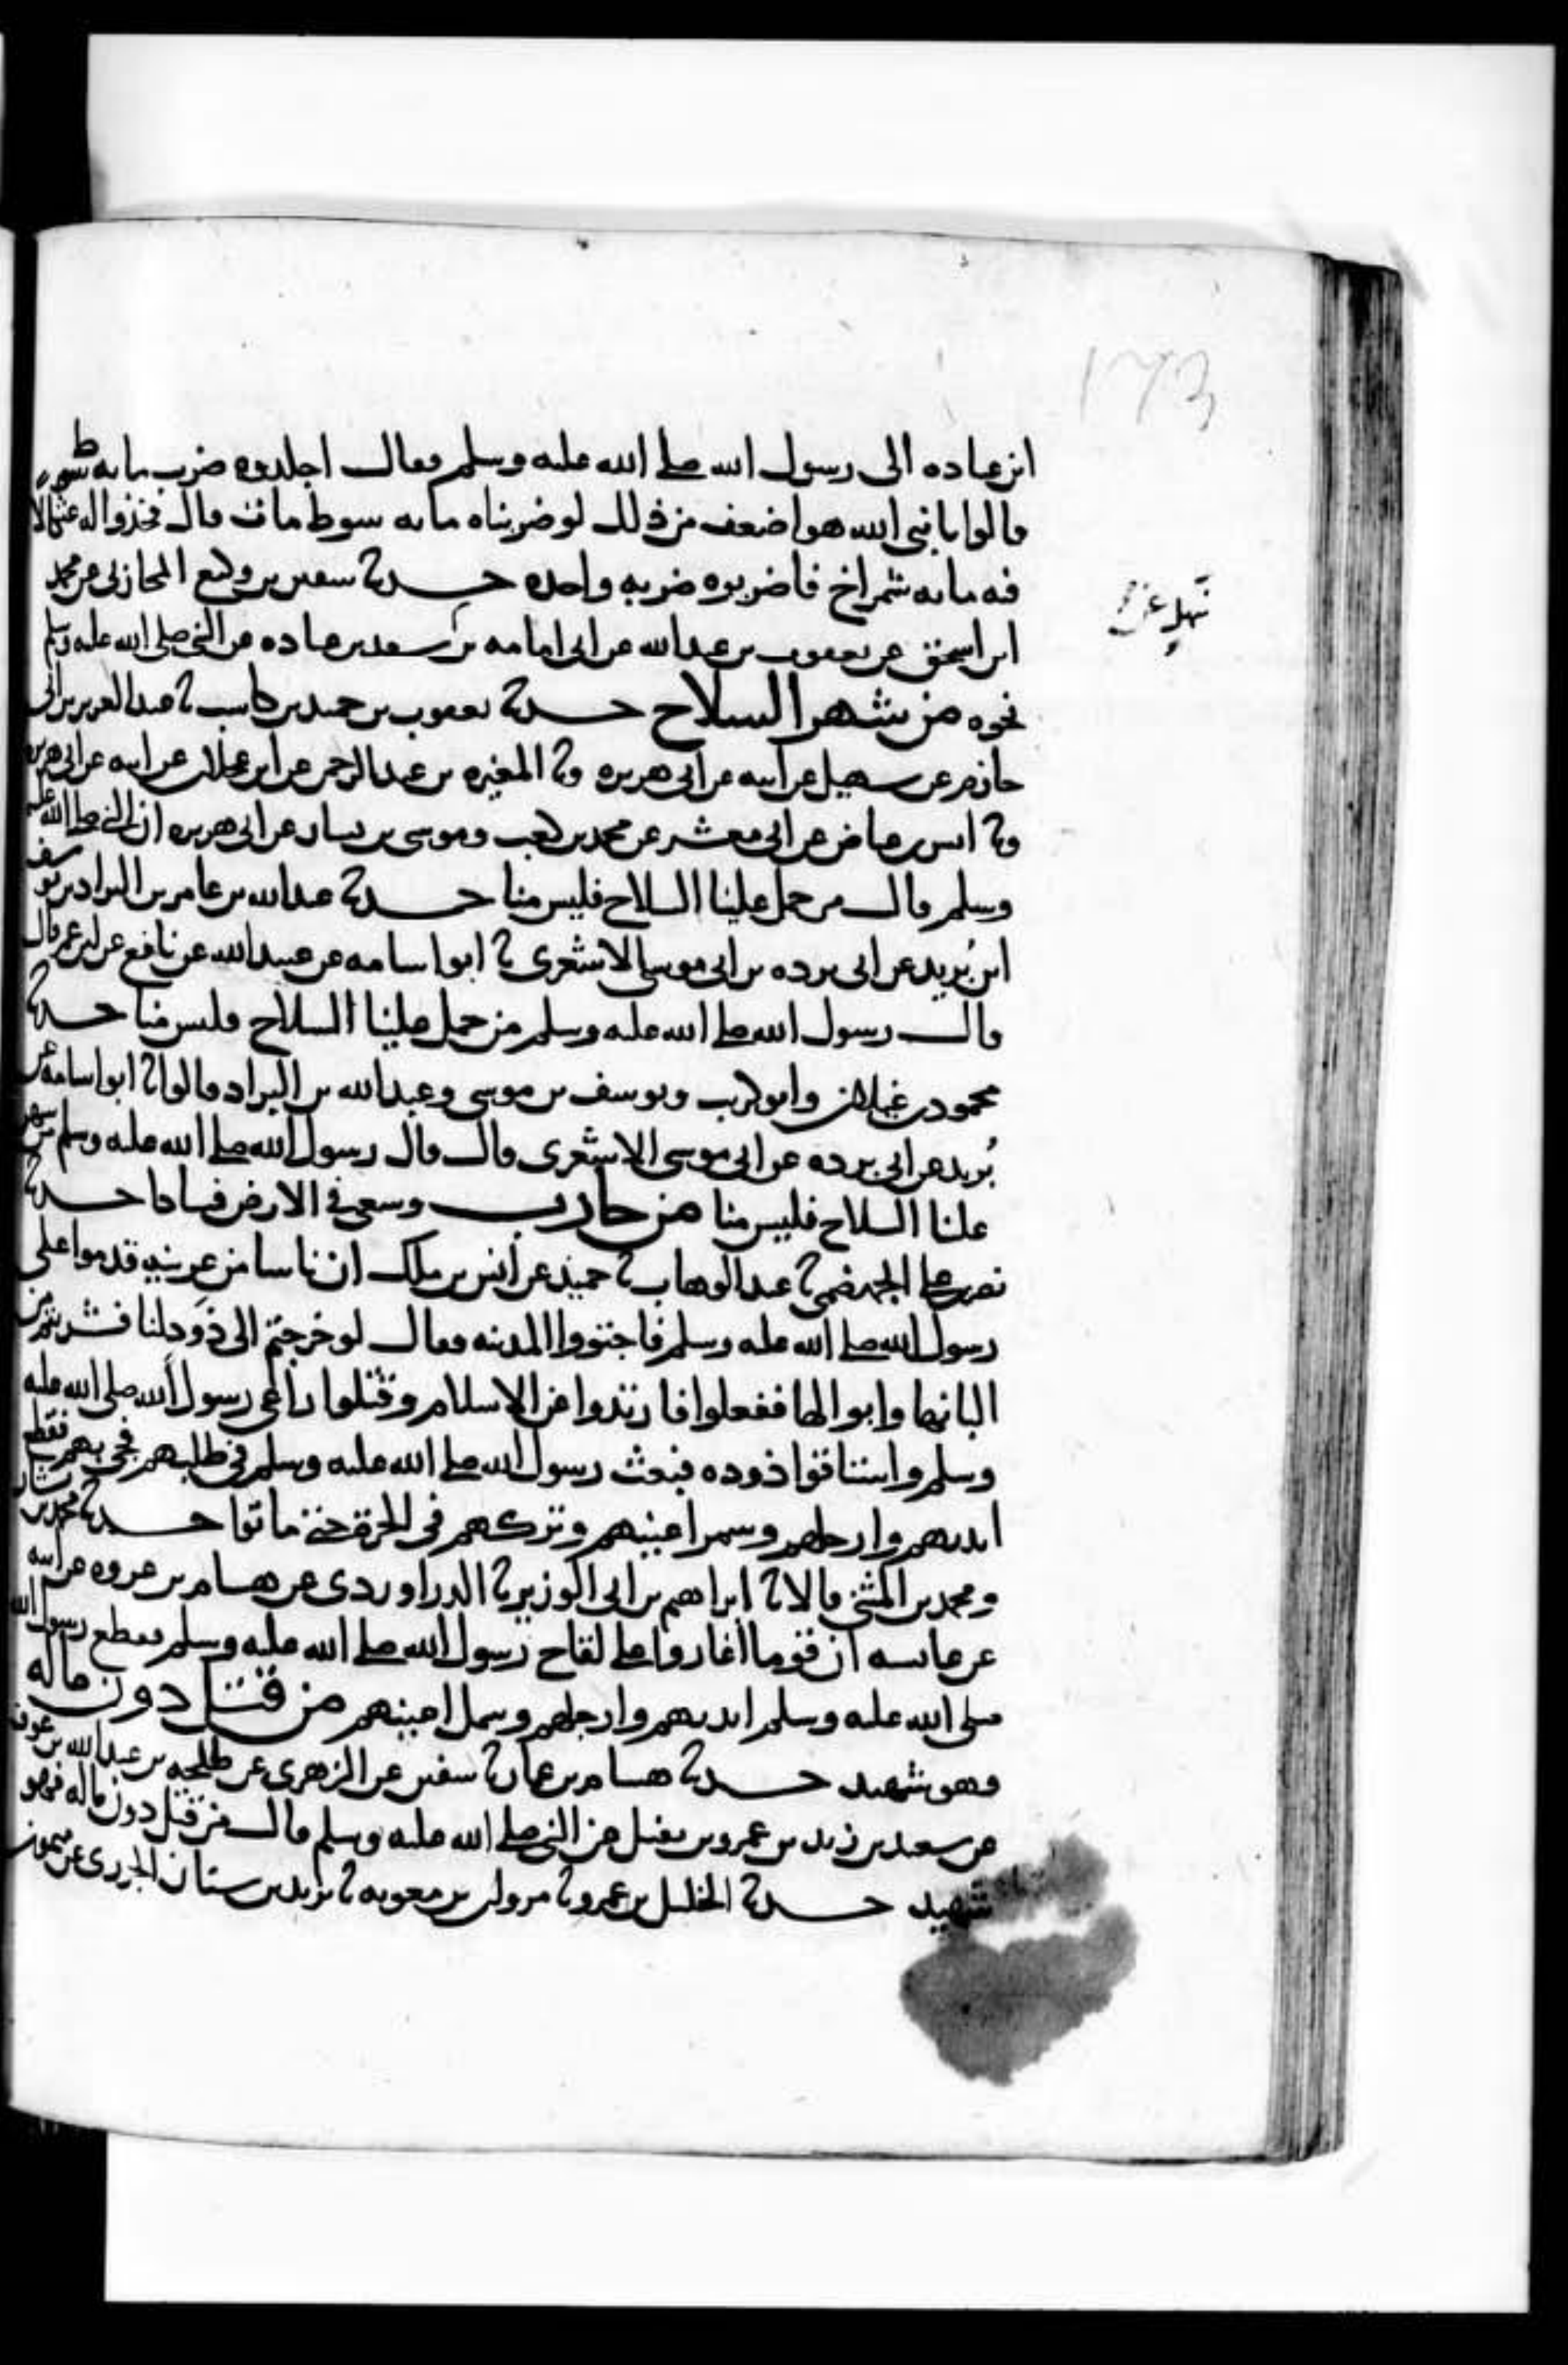 173
ابن عباده الى رسول الله صلى الله عليه وسلم فقال اجلدوه ضرب مايه سوط
قالوا يا نبي الله هو اضعف من ذلك لو ضربناه مايه سوط مات قال فخذوا له عثكالا
فيه مايه شمراخ فاضربوه ضربه واحده حدثنا سفين بن وكيع نا المحاربي عن محمد
ابن اسحق عن يعقوب بن عبدالله عن ابي امامه بن سعد بن عباده عن النبي صلى الله عليه وسلم
سهل عن
نحوه من شهر السلاح حدثنا يعقوب بن حميد بن كاسب نا عبدالعزيز بن ابي
حازم عن سهيل عن ابيه عن ابي هريره ونا المغيره بن عبدالرحمن عن ابن عجلان عن ابيه عن ابي هريره
ونا انس بن عياض عن ابي معشر عن محمد بن كعب وموسى بن يسار عن ابي هريره ان النبي صلى الله عليه
وسلم قال من حمل علينا السلاح فليس منا حدثنا عبدالله بن عامر بن البراد بن يوسف
ابن بُريد عن ابي برده بن ابي موسى الاشعرى نا ابو اسامه عن عبيدالله عن نافع عن ابن عمر قال
قال رسول الله صلى الله عليه وسلم من حمل علينا السلاح فليس منا حدثنا
محمود بن غيلان وابو كريب ويوسف بن موسى وعبدالله بن البراد قالوا نا ابو اسامه عن
بُريد عن ابي برده عن ابي موسى الاشعرى قال قال رسول الله صلى الله عليه وسلم من شهر
علينا السلاح فليس منا من حارب وسعى في الارض فسادا حدثنا
نصر بن على الجهضمي نا عبدالوهاب نا حميد عن انس بن ملك ان ناسا من عرينه قدموا على
رسول الله صلى الله عليه وسلم فاجتووا المدينه فقال لو خرجتم الى ذَود لنا فشربتم من
البانها وابوالها ففعلوا فارتدوا عن الاسلام وقتلوا راعى رسول الله صلى الله عليه
وسلم واستاقوا ذوده فبعث رسول الله صلى الله عليه وسلم في طلبهم فجى بهم فقطع
ايديهم وارجلهم وسمر اعينهم وتركهم في الحرة حتى ماتوا حدثنا محمد بن بشار
ومحمد بن المثنى قالا نا ابراهيم بن ابي الوزير نا الدراوردى عن هشام بن عروه عن ابيه
عن عايشه ان قوما اغاروا على لقاح رسول الله صلى الله عليه وسلم فقطع رسول الله
صلى الله عليه وسلم ايديهم وارجلهم وسمل اعينهم من قتل دون ماله
فهو شهيد حدثنا هشام بن عمار نا سفين عن الزهري عن طلحه بن عبدالله بن عوف
عن سعيد بن زيد بن عمرو بن نفيل عن النبي صلى الله عليه وسلم قال من قتل دون ماله فهو
شهيد حدثنا الخليل بن عمرو نا مروان بن معويه نا يزيد بن سنان الجزري عن ميمون